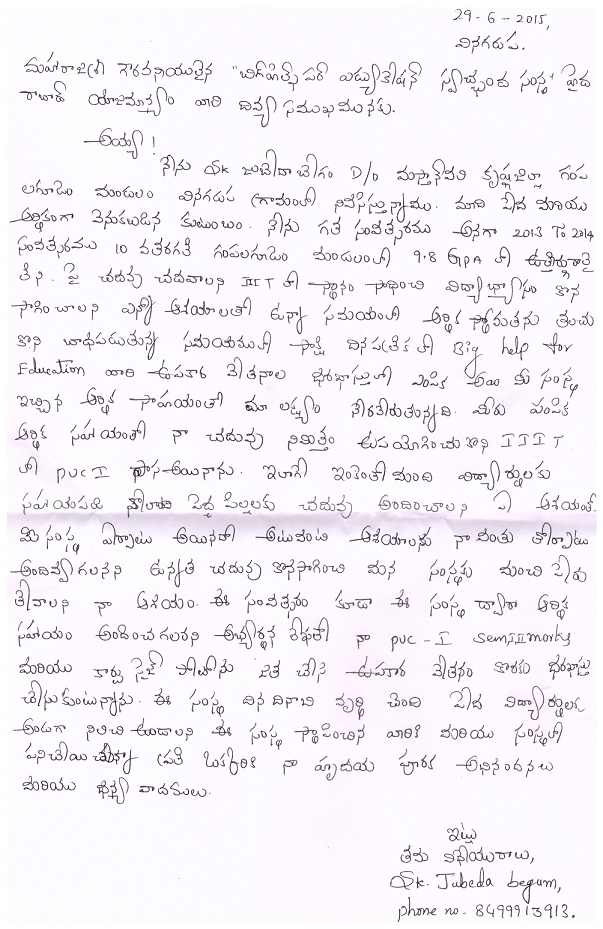 29-6-2015,
వినగరుప.
మహారాజశ్రీ గౌరవనీయులైన "బిగ్‌హెల్ప్ ఫర్ ఎడ్యుకేషన్ స్వచ్ఛంద సంస్థ" హైద
రాబాద్ యాజమాన్యం వారి దివ్య సముఖమునకు.
అయ్యా!
నేను Sk జుబేదాబేగం D/o మస్తాన్‌వలి కృష్ణాజిల్లా గంప
లగూడెం మండలం వినగరుప గ్రామంలో నివసిస్తున్నాము. మాది పేద మరియు
ఆర్థికంగా వెనుకబడిన కుటుంబం. నేను గత సంవత్సరము అనగా 2013 To 2014
సంవత్సరము 10 వతరగతి గంపలగూడెం మండలంలో 9.8 GPA తో ఉత్తీర్ణురాలై
తిని. పై చదువు చదవాలని IIIT లో స్థానం సాధించి విద్యాభ్యాసం కొన
సాగించాలని ఎన్నో ఆశయాలతో ఉన్న సమయంలో ఆర్థిక స్థోమతను తలుచు
కొని బాధపడుతున్న సమయములో సాక్షి దినపత్రిక లో Big help for
Education వారి ఉపకార వేతనాల ధరఖాస్తులో ఎంపిక అయి మీ సంస్థ
ఇచ్చిన ఆర్థిక సాహయంతో మా లక్ష్యం నేరవేరుతున్నది. మీరు పంపిక
ఆర్థిక సహాయంతో నా చదువు నిమిత్తం ఉపయోగించుకొని IIIT
లో puc I పాస్ అయినాను. ఇలాగే ఇంకెంతోమంది విద్యార్థులకు
సహాయపడి పేద్ద పిల్లలకు చదువు అందించాలని ఏ ఆశయంతో
మీసంస్థ ఏర్పాటు అయినదో అటువంటి ఆశయాలను నా వంతు తోర్పాటు
అందివ్వగలనని ఉన్నత చదువు కొనసాగించి మన సంస్థకు మంచి పేరు
తేవాలని నా ఆశయం. ఈ సంవత్సరం కూడా ఈ సంస్థ ద్వారా ఆర్థిక
సహాయం అందించగలరని నా puc-I semIImarks
మరియు పోటోను జత చేసి ఉపకార వేతనం కొరకు ధరఖాస్తు
చేసుకుంటున్నాను. ఈ సంస్థ దిన దినాబి వృర్థి చెంది పేద విద్యార్థులకు
అండగా నిలిచి ఉండాలని ఈ సంస్థ స్థాపించిన వారికి మరియు సంస్థలో
పనిచేయుచున్న ప్రతి ఒక్కరికి నా హృదయ పూరక అభినందనలు
మరియు ధన్య వాదములు.
ఇట్లు
తమ విధేయురాలు,
Sk. Jubeda begum,
phone no. 8499913913.